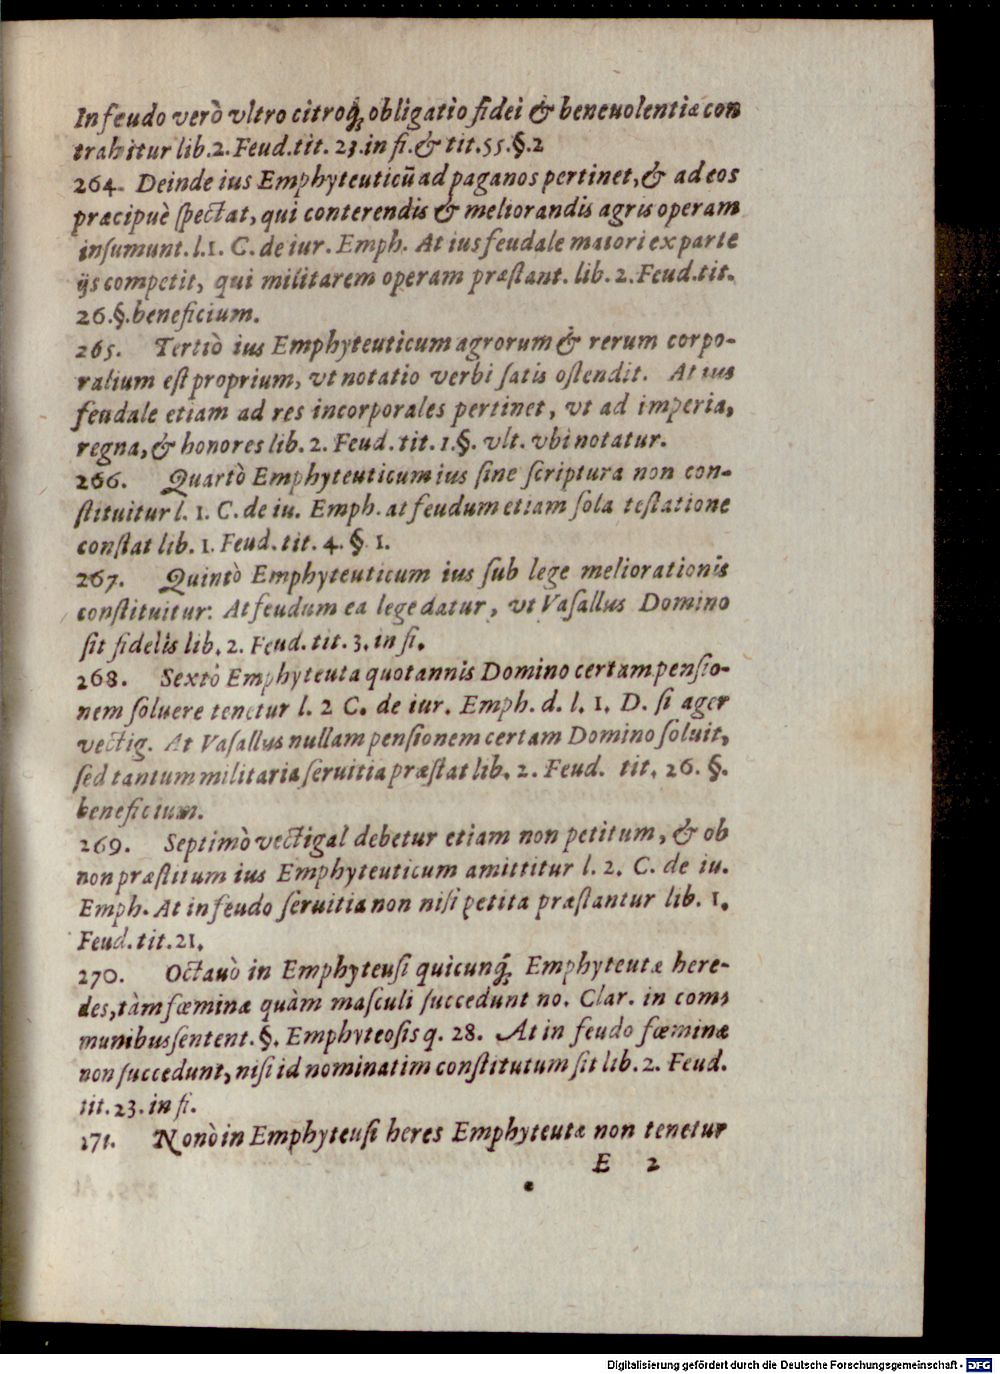 In feudo verò vltro citroq́; obligatio fidei & beneuolentiæ con
trahitur lib. 2. Feud. tit. 23. in fi. & tit. 55. §. 2
264. Deinde ius Emphyteuticũ ad paganos pertinet, & ad eos
præcipuè spectat, qui conterendis & meliorandis agris operam
insumunt. l. 1. C. de iur. Emph. At ius feudale maiori ex parte
ijs competit, qui militarem operam præstant. lib. 2. Feud. tit.
26. §. beneficium.
265. Tertiò ius Emphyteuticum agrorum & rerum corpo-
ralium est proprium, vt notatio verbi satis ostendit. At ius
feudale etiam ad res incorporales pertinet, vt ad imperia,
regna, & honores lib. 2. Feud. tit. 1. §. vlt. vbi notatur.
266. Quartò Emphyteuticum ius sine scriptura non con-
stituitur l. 1. C. de iu. Emph. at feudum etiam sola testatione
constat lib. 1. Feud. tit. 4. § 1.
267. Quintò Emphyteuticum ius sub lege meliorationis
constituitur: At feudum ea lege datur, vt Vasallus Domino
sit fidelis lib. 2. Feud. tit. 3. in fi.
268. Sextò Emphyteuta quotannis Domino certam pensio-
nem soluere tenetur l. 2 C. de iur. Emph. d. l. 1. D. si ager
vectig. At Vasallus nullam pensionem certam Domino soluit,
sed tantum militaria seruitia præstat lib. 2. Feud. tit. 26. §.
beneficium.
269. Septimò vectigal debetur etiam non petitum, & ob
non præstitum ius Emphyteuticum amittitur l. 2. C. de iu.
Emph. At in feudo seruitia non nisi petita præstantur lib. 1.
Feud. tit. 21.
270. Octauò in Emphyteusi quicunq́; Emphyteutæ here-
des, tàm fœminæ quàm masculi succedunt no. Clar. in com-
munibus sentent. §. Emphyteosis q. 28. At in feudo fœminæ
non succedunt, nisi id nominatim constitutum sit lib. 2. Feud.
tit. 23. in fi.
271. Nonò in Emphyteusi heres Emphyteutæ non tenetur
E 2
Digitalisierung gefördert durch die Deutsche Forschungsgemeinschaft - DFG